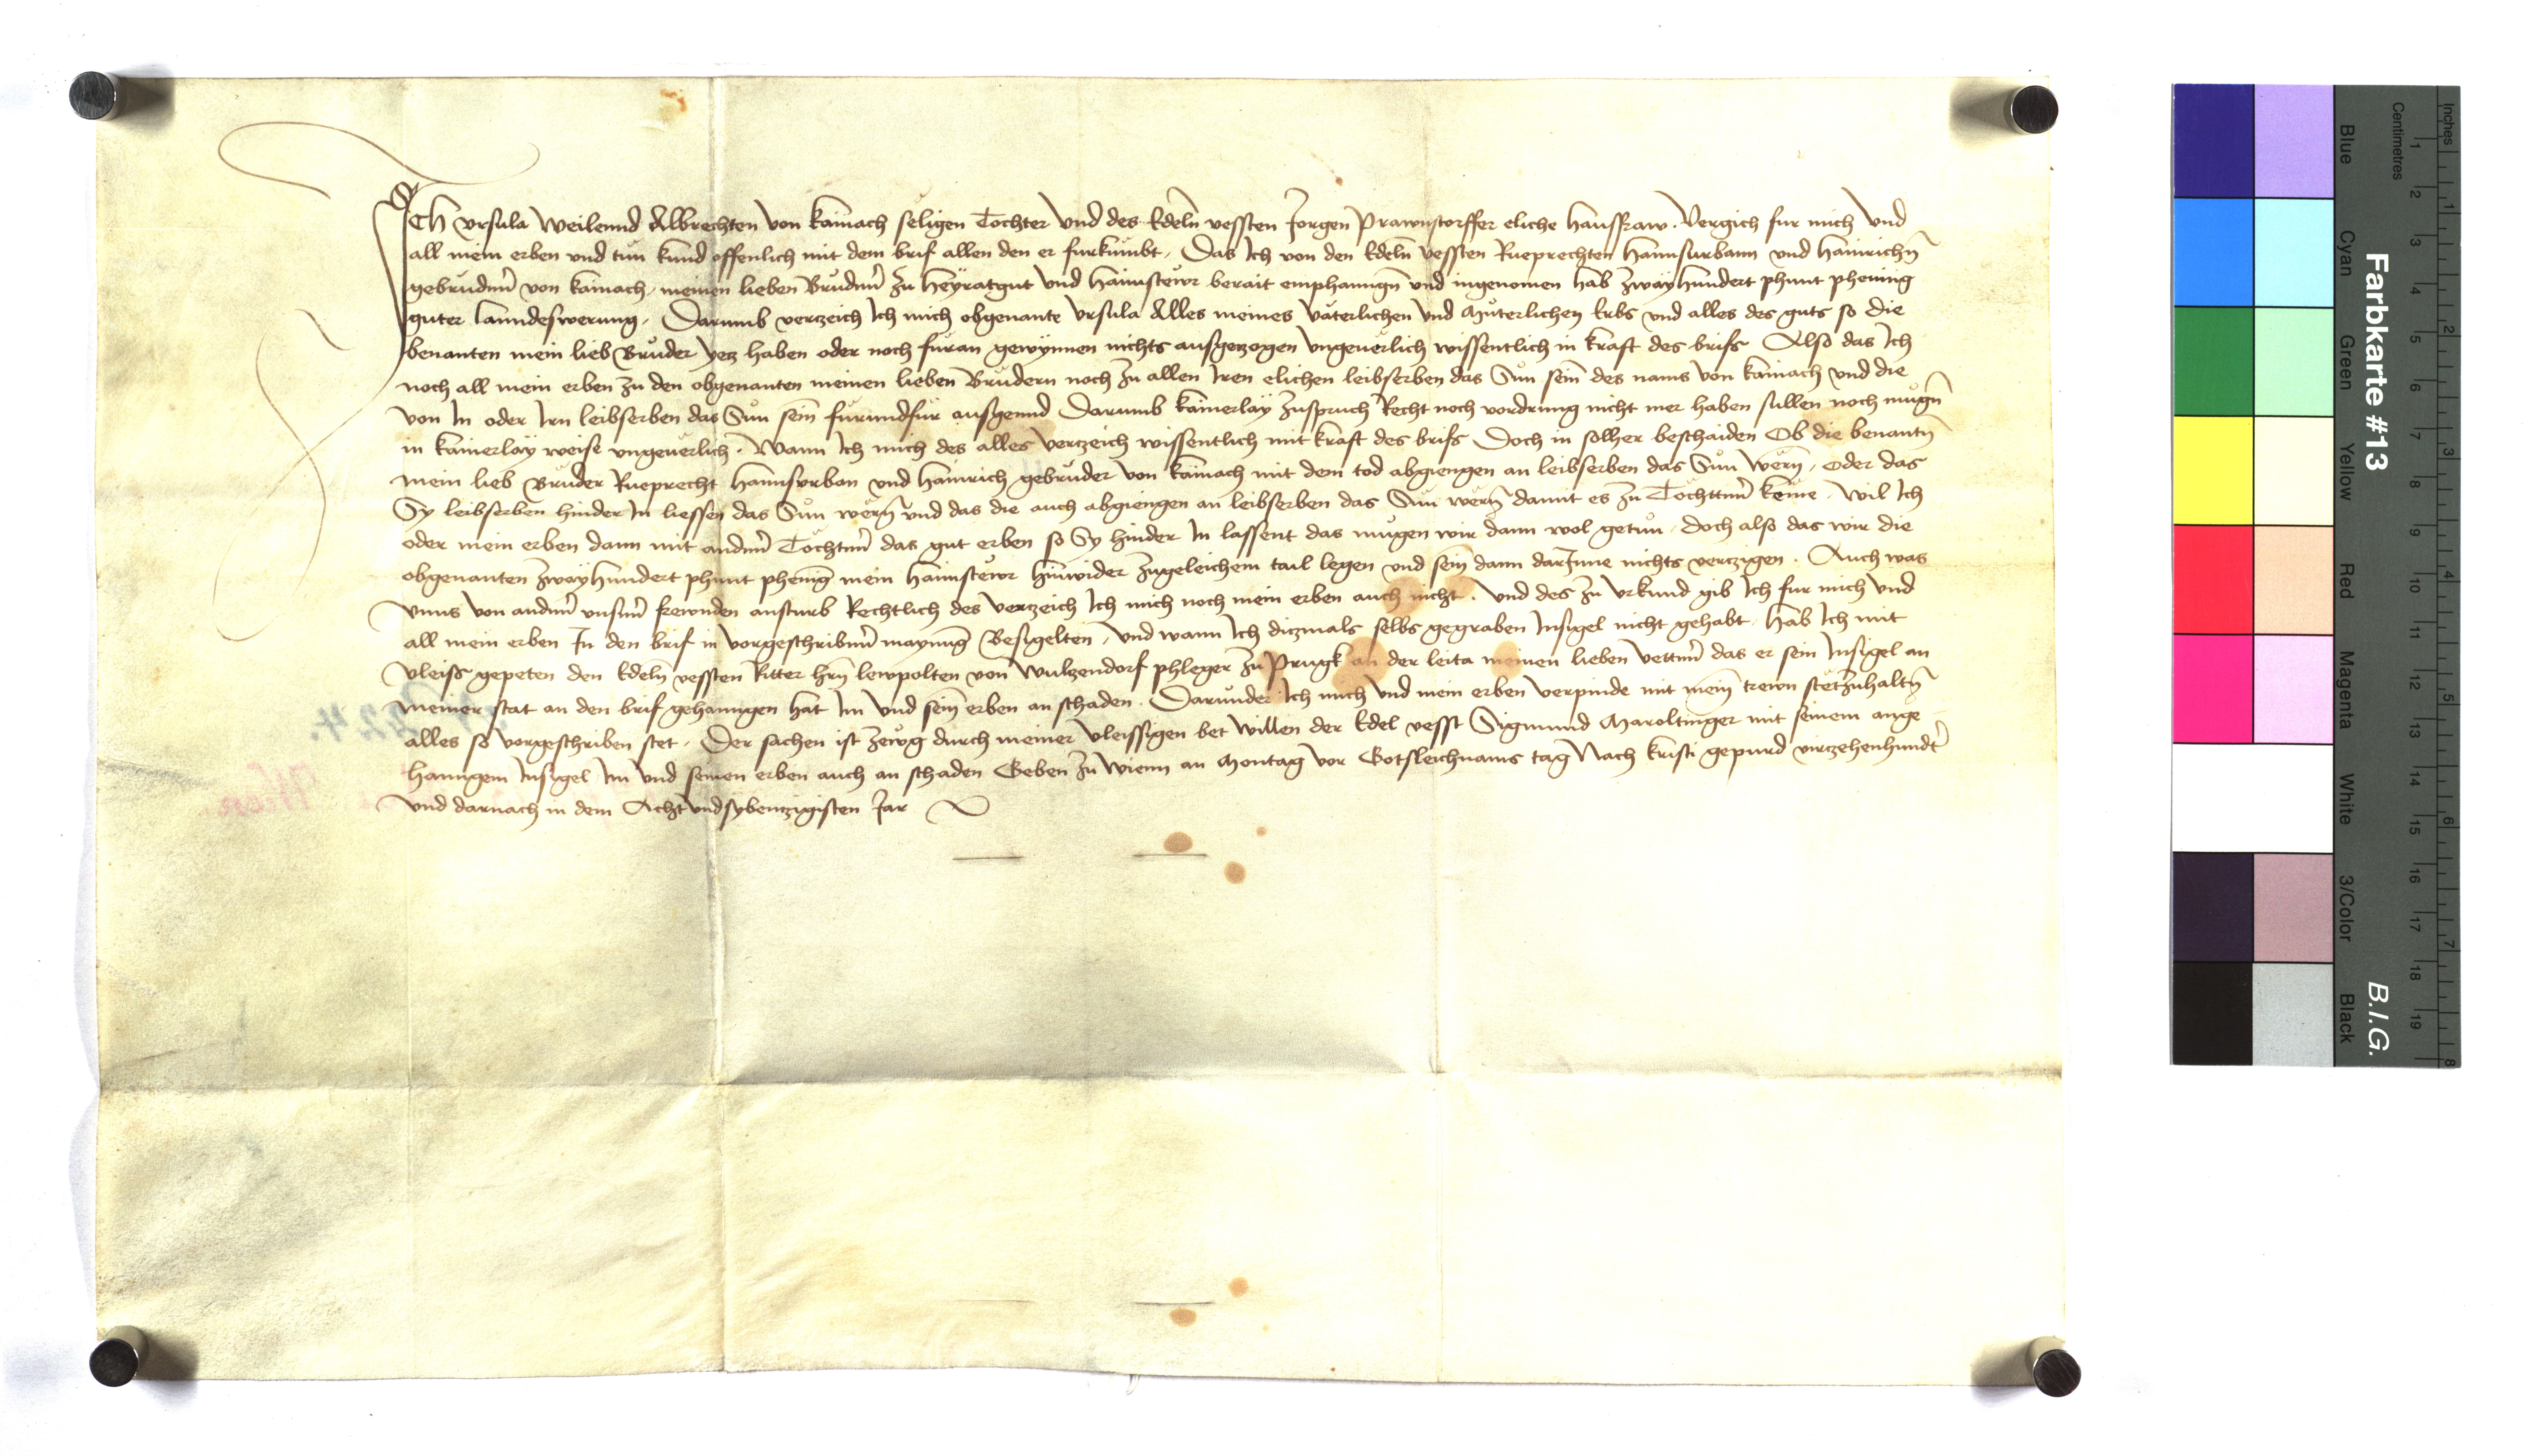 Ich Vrsula Weilennd Albrechten von Kainach seligen Tochter Vnd des Edeln vessten Jorgen Prawnstorffer eliche hausfraw. Vergich fur mich Vnd
all mein erben vnd tun kund offenlich mit dem brif allen den er furkumbt, Das Ich von den Edeln vessten Rueprechten Hannsurbann vnd Hainrichn
gebrudern von Kainach, meinen lieben Brudern Zu Heyratgut Vnd Haimstewr berait emphanngn vnd ingenomen hab Zwayhundert phunt phening
guter lanndeswerung. Darumb verczeich Ich mich obgenante Vrsula Alles meines vaterlichen Vnd Muterlichen Erbs vnd alles des guts so die
benanten mein lieb Bruder yecz haben oder noch furan gewynnen nichts ausgeczogen Vngeuerlich wissentlich in kraft des brifs Also das Ich
noch all mein erben zu den obgenanten meinen lieben Brudern noch Zu allen Iren elichen leibserben das Sun sein des nams Von Kainach vnd die
Von In oder Irn leibserben das Sun sein furundfur ausgennd Darumb kainerlay Zuspruch Recht noch vordrung nicht mer haben sullen noch mugn
in kainerlay weise vngeuerlich. Wann Ich mich des alles verczeich wissentlich mit kraft des brifs Doch in solher beschaiden Ob die benantn
mein lieb Bruder Rueprecht Hannsvrban vnd Hainrich gebruder von Kainach mit dem tod abgiengen an leibserben das Sun Wern, oder das
Sy leibserben hinder In liessen das Sun wern vnd das die auch abgiengen an leibserben das Sun wern damit es Zu Tochttern keme. Wil Ich
oder mein erben dann mit andern Tochtern das gut erben so Sy hinder In lassent das mugen wir dann wol getun. doch also das wir die
obgenanten Zwayhundert phunt phening mein Haimstewr hinwider Zugeleichem tail legen vnd sein dann darInne nichts verczigen. Auch was
Vnns von andern vnsern frewnden ansturb Rechtlich des verczeich Ich mich noch mein erben auch nicht. Vnd des zu Vrkund gib Ich fur mich Vnd
all mein erben In den brif in vorgeschribner maynung Besigelten, Vnd wann Ich diczmals selbs gegraben Insigel nicht gehabt, Hab Ich mit
Vleiss gepeten den Edeln vessten Ritter hrn lewpolten von Wulzendorf phleger Zu Prugk an der leita meinen lieben Vettern das er sein Insigel an
meiner stat an den brif gehanngen hat Im Vnd sein erben an schaden. Darunder Ich mich Vnd mein erben verpinde mit mein trewn stetZuhaltn
alles so vorgeschriben stet. Der sachen ist Zewg durch meiner vleissigen bet Willen der Edel vesst Sigmund Maroltinger mit seinem ange
hanngem Insigel Im Vnd seinen erben auch an schaden Geben Zu Wienn an Montag vor Gotsleichnams tag Nach Kristi gepurd virczehenhundt
Vnd darnach in dem Acht Vndsybenczigisten Jar
Farbkarte #13
B.I.G.
Centimetres
Inches
Blue
Cyan
Green
Yellow
Red
Magenta
White
3/Color
Black
1 2 3 4 5 6 7 8 9 10 11 12 13 14 15 16 17 18 19
1 2 3 4 5 6 7 8